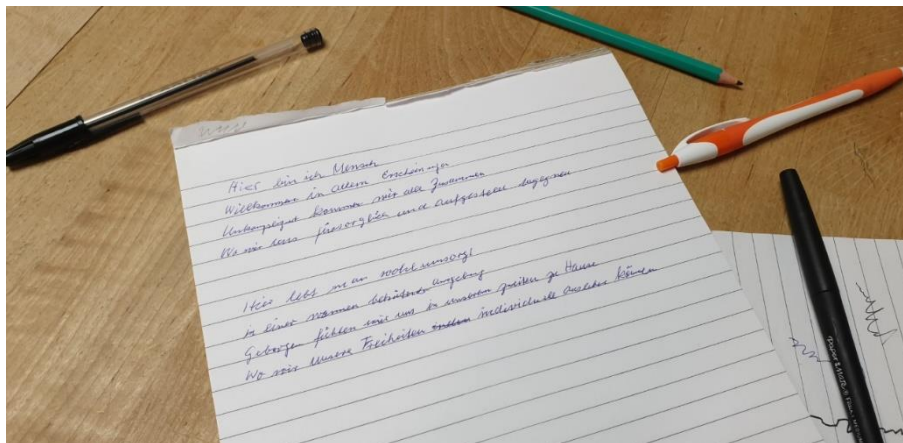 Hier bin ich Mensch
Willkommen in allem Erscheinungen
Unkompliziert kommen wir alle Zusammen
Wo wir uns fürsorglich und aufgestellt begegnen
Hier lebt man wohl umsorgt
in einer warmen behüteten umgebung
Geborgen fühlen wir uns in unserem großen zu Hause
Wo wir unsere Freiheiten individuell ausleben können